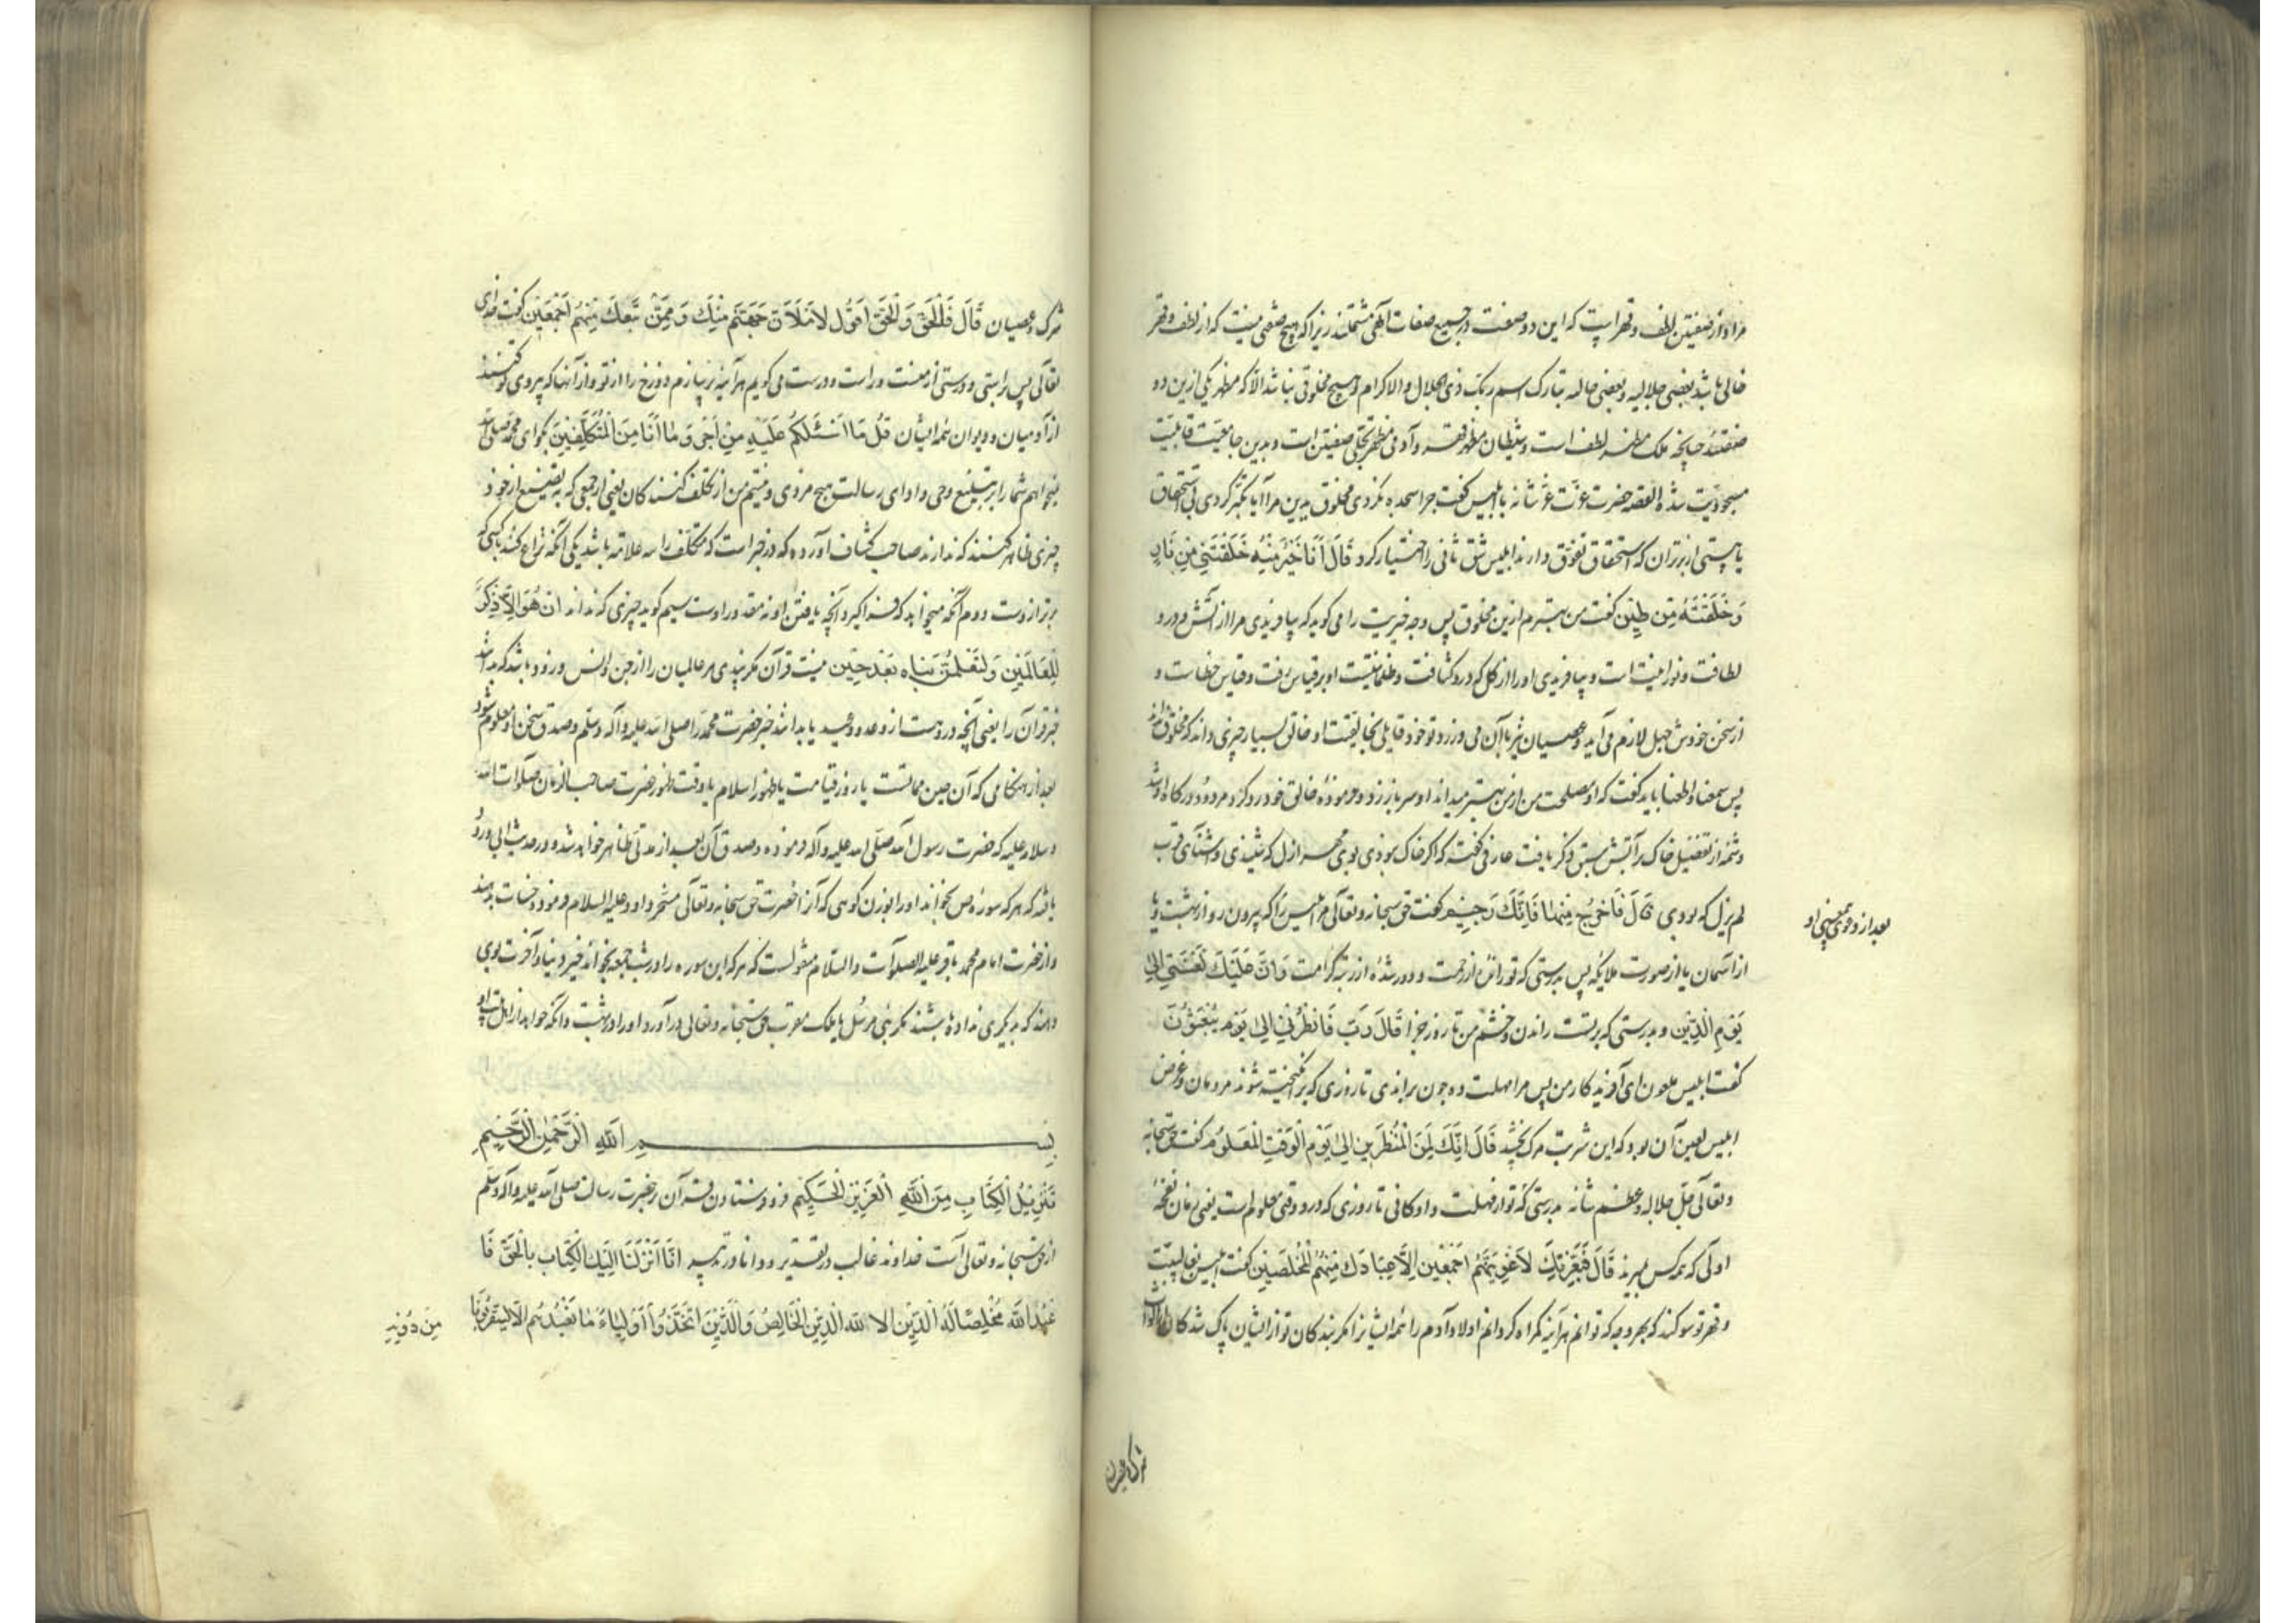 مراد از صفتین لطف و قهر است که این دو صفت در جمیع صفات الهی مشتملند زیرا که هیچ صفتی نیست که از لطف و قهر
خالی باشد بعضی جلالیه و بعضی جمالیه تبارک اسم ربک ذی الجلال و الاکرام و هیچ مخلوقی نباشد الا که مظهر یکی ازین دو
صفتند چنانچه ملک مظهر لطف است و شیطان مظهر قهر و آدمی مظهر تجلی صفتین است و بدین جامعیت قابلیت
مسجودیت شده القصه حضرت عزت عز شانه با ابلیس گفت چرا سجده نکردی مخلوق یدین مرا آیا تکبر کردی بی استحقاق
یا هستی از برتران که استحقاق تفوق دارند ابلیس شق ثانی را اختیار کرد قَالَ اَنَا خَیْرٌ مِنْهُ خَلَقْتَنِی مِنْ نَارٍ
وَخَلَقْتَهُ مِنْ طِینٍ گفت من بهترم ازین مخلوق پس وجه خیریت را می گوید که بیافریدی مرا از آتش و درو
لطافت و نورانیت است و بیافریدی او را از گل که درو کثافت و ظلمانیت است او بر قیاس رفت و قیاس خطاست و
از سخن خودش جهل لازم می آید و عصیان نیز با آن می ورزد تو خود قایلی بخالقیت او خالق بسیار چیزی داند که مخلوق نداند
پس سمعنا و اطعنا باید گفت که او مصلحت من از من بهتر میداند او سر باز زد و فرموده خالق خود رد کرد و مردود درگاه او شد
و شمه از تفضیل خاک بر آتش سبق ذکر یافت عارفی گفته که اگر خاک بودی بوی مهر ازل که شنیدی و آشنای قرب
لم یزل که بودی قَالَ فَاخْرُجْ مِنْهَا فَاِنَّکَ رَجِیمٌ گفت حق سبحانه و تعالی مر ابلیس را که بیرون رو از بهشت و یا
از آسمان یا از صورت ملایکه پس بدرستی که تو رانده از رحمت و دور شده از رتبه کرامت وَاِنَّ عَلَیْکَ لَعْنَتِی اِلٰی
یَوْمِ الدِّینِ و بدرستی که بر تست راندن و خشم من تا روز جزا قَالَ رَبِّ فَانْظِرْنِی اِلٰی یَوْمِ یُبْعَثُونَ
گفت ابلیس ملعون ای آفریدگار من پس مرا مهلت ده چون براندی تا روزی که برانگیخته شوند مردمان و غرض
ابلیس لعین آن بود که این شربت مرگ نچشد قَالَ اِنَّکَ لَمِنَ الْمُنْظَرِینَ اِلٰی یَوْمِ الْوَقْتِ الْمَعْلُومِ گفت حق سبحانه
و تعالی جل جلاله و عظم شانه بدرستی که تو از مهلت دادگانی تا روزی که درو وقتی معلوم است یعنی زمان نفخه
اولی که همه کس بمیرند قَالَ فَبِعِزَّتِکَ لَاُغْوِیَنَّهُمْ اَجْمَعِینَ اِلَّا عِبَادَکَ مِنْهُمُ الْمُخْلَصِینَ گفت ابلیس بغالبیت
و قهر تو سوگند که بهر وجه که توانم هر آینه گمراه گردانم اولاد آدم را همه ایشان را مگر بندگان تو از ایشان پاک شدگان
بعد از
شرک و عصیان
شرک و عصیان قَالَ فَالْحَقُّ وَالْحَقَّ اَقُولُ لَاَمْلَاَنَّ جَهَنَّمَ مِنْکَ وَمِمَّنْ تَبِعَکَ مِنْهُمْ اَجْمَعِینَ گفت خدای
تعالی پس راستی و درستی از منست و راست و درست می گویم هر آینه پر سازم دوزخ را از تو و از آنها که پیروی تو کنند
از آدمیان و دیوان همه ایشان قُلْ مَا اَسْئَلُکُمْ عَلَیْهِ مِنْ اَجْرٍ وَمَا اَنَا مِنَ الْمُتَکَلِّفِینَ بگو ای محمد صلی الله
نمیخواهم شما را بر تبلیغ وحی و ادای رسالت هیچ مزدی و نیستم من از تکلف کنندگان یعنی از جمعی که به تصنع از خود
چیزی ظاهر کنند که ندارند صاحب کشاف آورده که در خبر است که متکلف را سه علامت باشد یکی آنکه نزاع کند با کسی که
برتر ازوست دوم آنکه میخواهد که فرا گیرد آنچه یافتن او نه مقدور اوست سیم گوید چیزی که نداند اِنْ هُوَ اِلَّا ذِکْرٌ
لِلْعَالَمِینَ وَلَتَعْلَمُنَّ نَبَاَهُ بَعْدَ حِینٍ نیست قرآن مگر پندی مر عالمیان را از جن و انس و زود باشد که بدانند
خبر قرآن را یعنی آنچه دروست از وعد و وعید یا بدانند خبر حضرت محمد را صلی الله علیه و آله وسلم و صدق سخن او معلوم شود
بعد از هنگامی که آن حین مماتست یا روز قیامت یا ظهور اسلام یا وقت ظهور حضرت صاحب الزمان صلوات الله
و سلامه علیه که حضرت رسول الله صلی الله علیه و آله فرموده و صدق آن بعد از مدتی ظاهر خواهد شد و در حدیث ابی ورود
یافته که هر که سوره ص بخواند او را بوزن کوهی که آنرا حضرت حق سبحانه و تعالی مسخر داود علیه السلام فرمود حسنات بدهند
و از حضرت امام محمد باقر علیه الصلوات والسلام منقولست که هر که این سوره را در شب جمعه بخواند خیر دنیا و آخرت بوی
دهند که بدیگری نداده باشند مگر نبی مرسل یا ملک مقرب و حق سبحانه و تعالی در آورد او را در بهشت و آنکه خواهد از اهل بیت او
بِسْمِ اللهِ الرَّحْمٰنِ الرَّحِیمِ
تَنْزِیلُ الْکِتَابِ مِنَ اللهِ الْعَزِیزِ الْحَکِیمِ فرو فرستادن قرآن بر حضرت رسالت صلی الله علیه وآله وسلم
از حق سبحانه و تعالی است خداوند غالب در تقدیر و دانا در تدبیر اِنَّا اَنْزَلْنَا اِلَیْکَ الْکِتَابَ بِالْحَقِّ فَا
عْبُدِ اللهَ مُخْلِصًا لَهُ الدِّینَ اَلَا لِلّٰهِ الدِّینُ الْخَالِصُ وَالَّذِینَ اتَّخَذُوا اَوْلِیَاءَ مَا نَعْبُدُهُمْ اِلَّا لِیُقَرِّبُونَا
مِنْ دُونِهِ